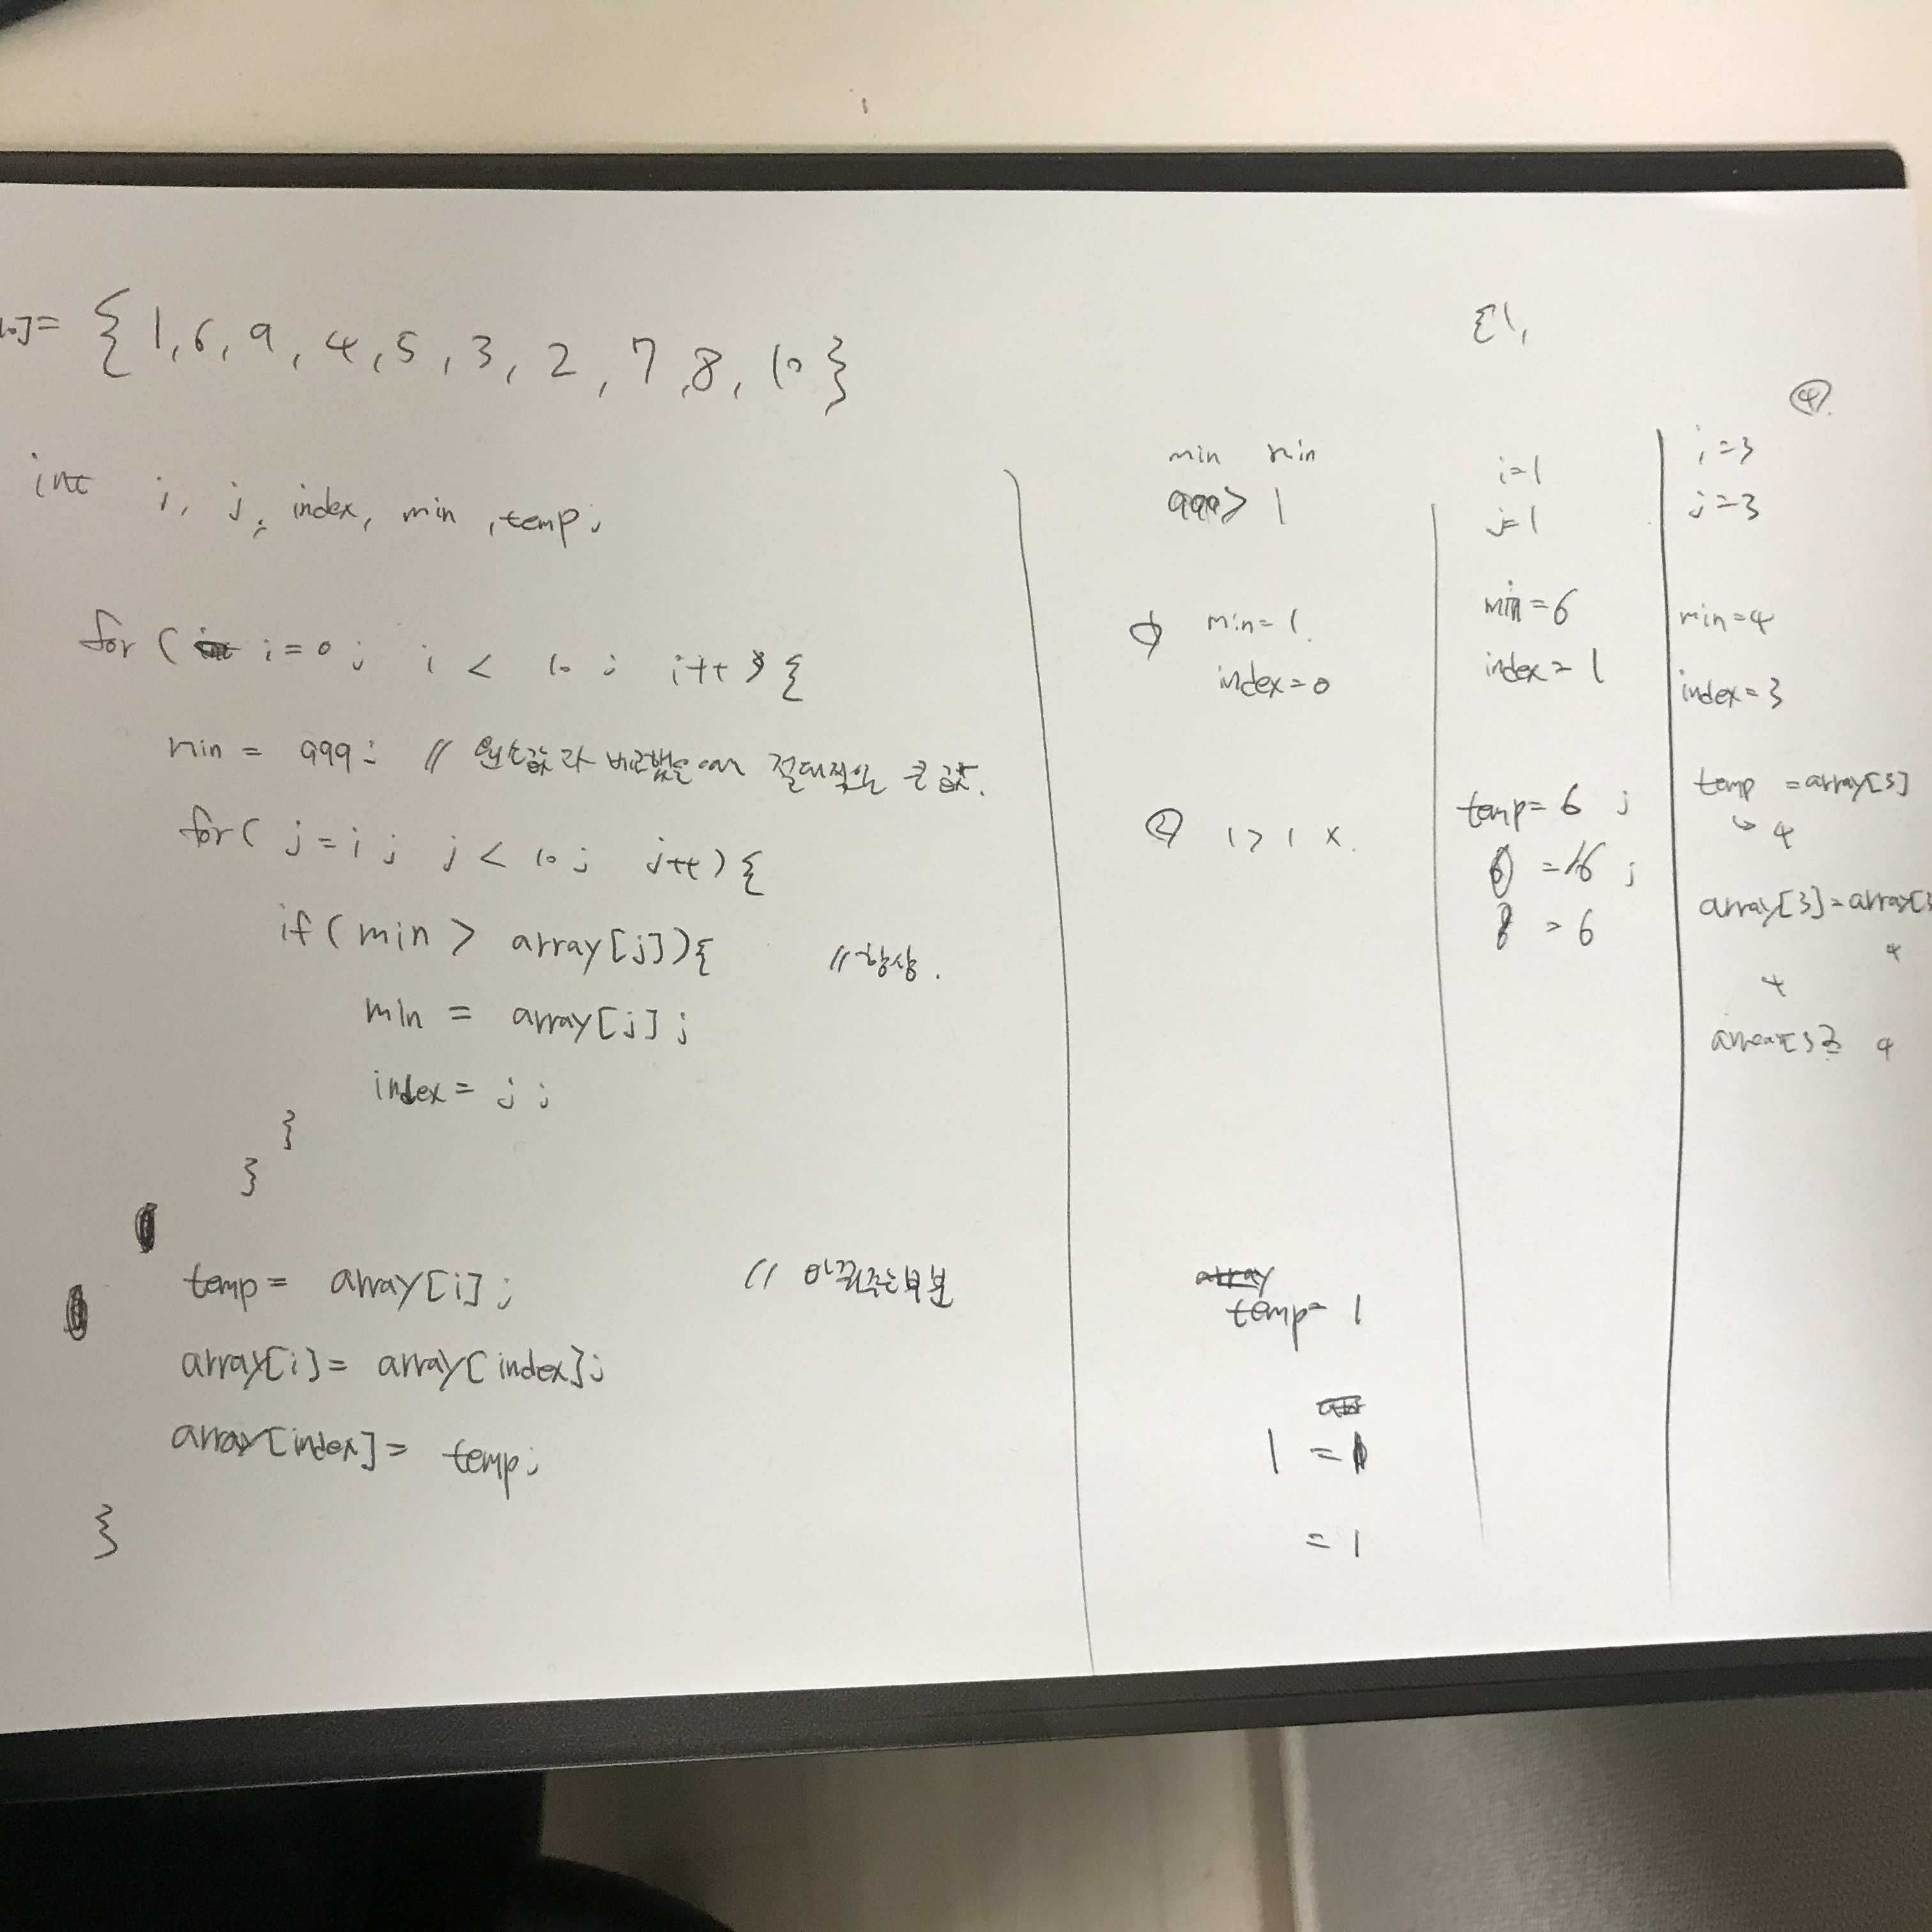 ]= { 1, 6, 9, 4, 5, 3, 2, 7, 8, 10 }
int i, j, index, min, temp;
for ( i=0; i < 10; i++ ) {
min = 999; // 원소값과 비교했을때 절대적인 큰 값.
for ( j=i; j < 10; j++ ) {
if ( min > array[j] ) { // 항상.
min = array[j];
index = j;
}
}
temp = array[i]; // 바꿔주는부분
array[i] = array[index];
array[index] = temp;
}
{1,
min min
999> 1
① min=1.
index=0
② 1 > 1 x.
temp= 1
1 = 1
= 1
i=1
j=1
min=6
index=1
temp=6;
=6;
=6
④
i=3
j=3
min=4
index=3
temp = array[3]
↳ 4
array[3]=array[3
4
4
array[3]= 4